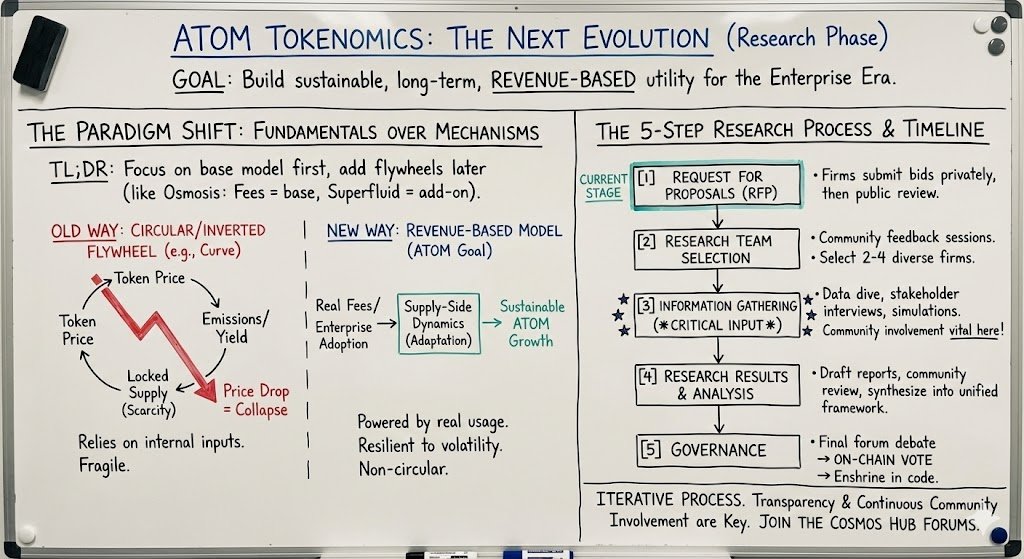 ATOM TOKENOMICS: THE NEXT EVOLUTION (Research Phase)
GOAL: Build sustainable, long-term, REVENUE-BASED utility for the Enterprise Era.
THE PARADIGM SHIFT: FUNDAMENTALS OVER MECHANISMS
TL;DR: Focus on base model first, add flywheels later
(like Osmosis: Fees = base, Superfluid = add-on).
OLD WAY: CIRCULAR/INVERTED
FLYWHEEL (e.g., Curve)
Token Price
Emissions/
Yield
Locked
Supply
(Scarcity)
Token
Price
Price Drop
= Collapse
Relies on internal inputs.
Fragile.
NEW WAY: REVENUE-BASED MODEL
(ATOM Goal)
Real Fees/
Enterprise
Adoption
Supply-Side
Dynamics
(Adaptation)
Sustainable
ATOM
Growth
Powered by real usage.
Resilient to volatility.
Non-circular.
THE 5-STEP RESEARCH PROCESS & TIMELINE
CURRENT
STAGE
[1] REQUEST FOR
PROPOSALS (RFP)
• Firms submit bids privately,
then public review.
[2] RESEARCH TEAM
SELECTION
• Community feedback sessions.
• Select 2-4 diverse firms.
[3] INFORMATION GATHERING
(*CRITICAL INPUT*)
• Data dive, stakeholder
interviews, simulations.
Community involvement vital here!
[4] RESEARCH RESULTS
& ANALYSIS
• Draft reports, community
review, synthesize into unified
framework.
[5] GOVERNANCE
• Final forum debate
→ ON-CHAIN VOTE
→ Enshrine in code.
ITERATIVE PROCESS. Transparency & Continuous Community
Involvement are Key. JOIN THE COSMOS HUB FORUMS.